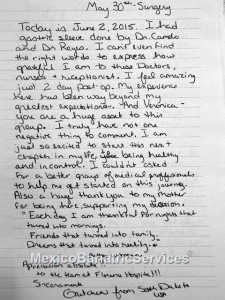 May 30th - Surgery
Today is June 2, 2015. I had
gastric sleeve done by Dr. Camelo
and Dr. Reyes. I can't even find
the right words to express how
grateful I am to these Doctors,
nurses + receptionist. I feel amazing
just 2 day post-op. My experience
here has been way beyond my
greatest expectations. And Veronica -
you are a huge asset to this
group. I truly have not one
negative thing to comment. I am
just so excited to start this next
chapter in my life, being healthy
and in control. I couldn't asked
for a better group of medical professionals
to help me get started on this journey.
Also a huge thank you to my mother
for being here, supporting my decision.
"Each day I am thankful for nights that
turned into mornings.
Friends that turned into family.
Dreams that turned into reality."
MexicoBariatricServices
Appreciation
to the team at Hospital!!!
Sincerely
from South Dakota
USA